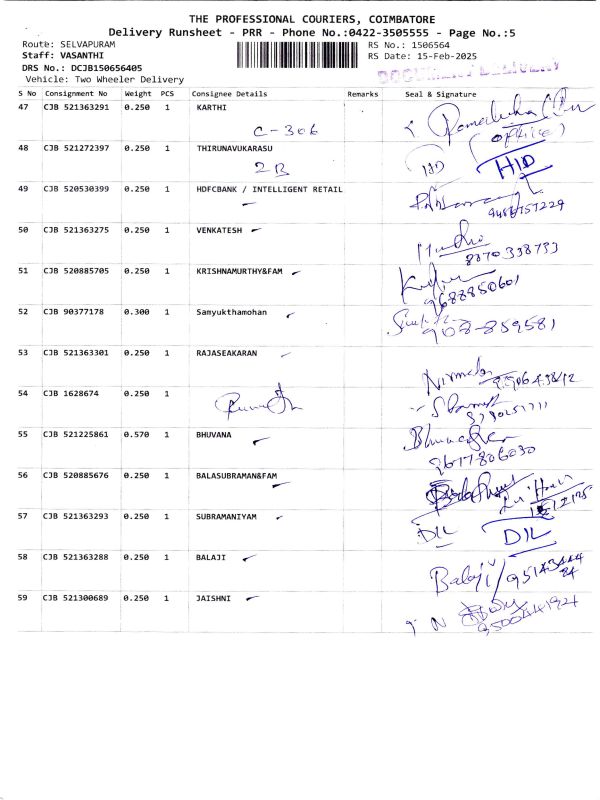 THE PROFESSIONAL COURIERS, COIMBATORE
Delivery Runsheet - PRR - Phone No.:0422-3505555 - Page No.:5
Route: SELVAPURAM
RS No.: 1506564
Staff: VASANTHI
RS Date: 15-Feb-2025
DRS No.: DCJB150656405
DOCUMENT DELIVERY
Vehicle: Two Wheeler Delivery
S No Consignment No Weight PCS Consignee Details Remarks Seal & Signature
47 CJB 521363291 0.250 1 KARTHI
C-306
(office)
48 CJB 521272397 0.250 1 THIRUNAVUKARASU
2B
HID
49 CJB 520530399 0.250 1 HDFCBANK / INTELLIGENT RETAIL
50 CJB 521363275 0.250 1 VENKATESH
8870338733
51 CJB 520885705 0.250 1 KRISHNAMURTHY&FAM
9688850601
52 CJB 90377178 0.300 1 Samyukthamohan
908-859581
53 CJB 521363301 0.250 1 RAJASEAKARAN
54 CJB 1628674 0.250 1
55 CJB 521225861 0.570 1 BHUVANA
56 CJB 520885676 0.250 1 BALASUBRAMAN&FAM
57 CJB 521363293 0.250 1 SUBRAMANIYAM
D/L D/L
58 CJB 521363288 0.250 1 BALAJI
Balaji
59 CJB 521300689 0.250 1 JAISHNI
9500441924